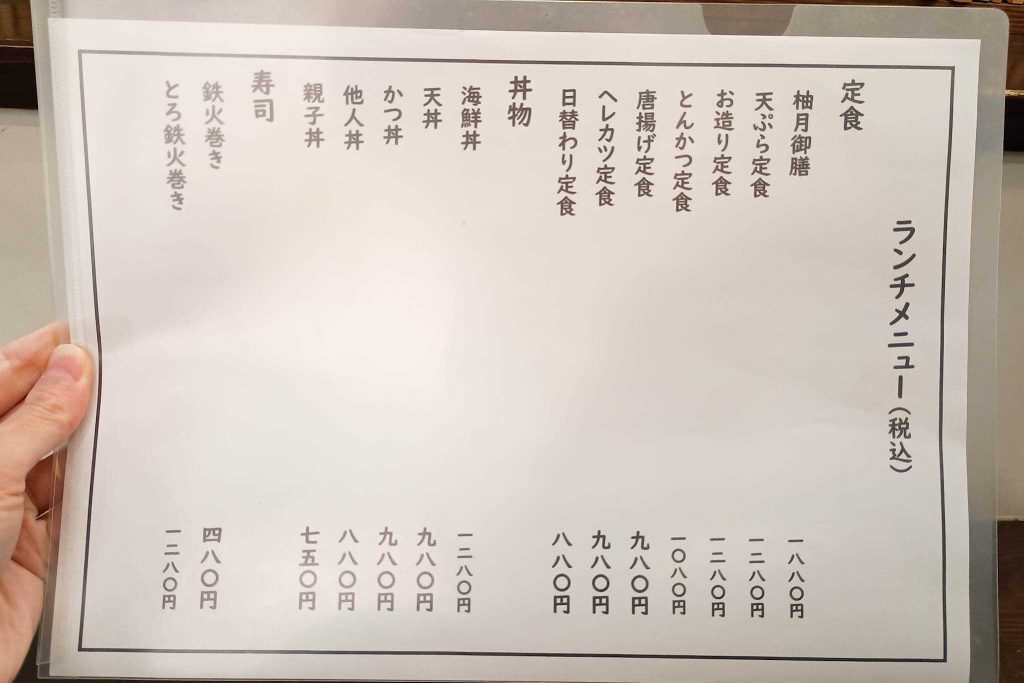 ランチメニュー（税込）
定食
柚月御膳 一八八〇円
天ぷら定食 一二八〇円
お造り定食 一二八〇円
とんかつ定食 一〇八〇円
唐揚げ定食 九八〇円
ヘレカツ定食 九八〇円
日替わり定食 八八〇円
丼物
海鮮丼 一二八〇円
天丼 九八〇円
かつ丼 九八〇円
他人丼 八八〇円
親子丼 七五〇円
寿司
鉄火巻き 四八〇円
とろ鉄火巻き 一二八〇円